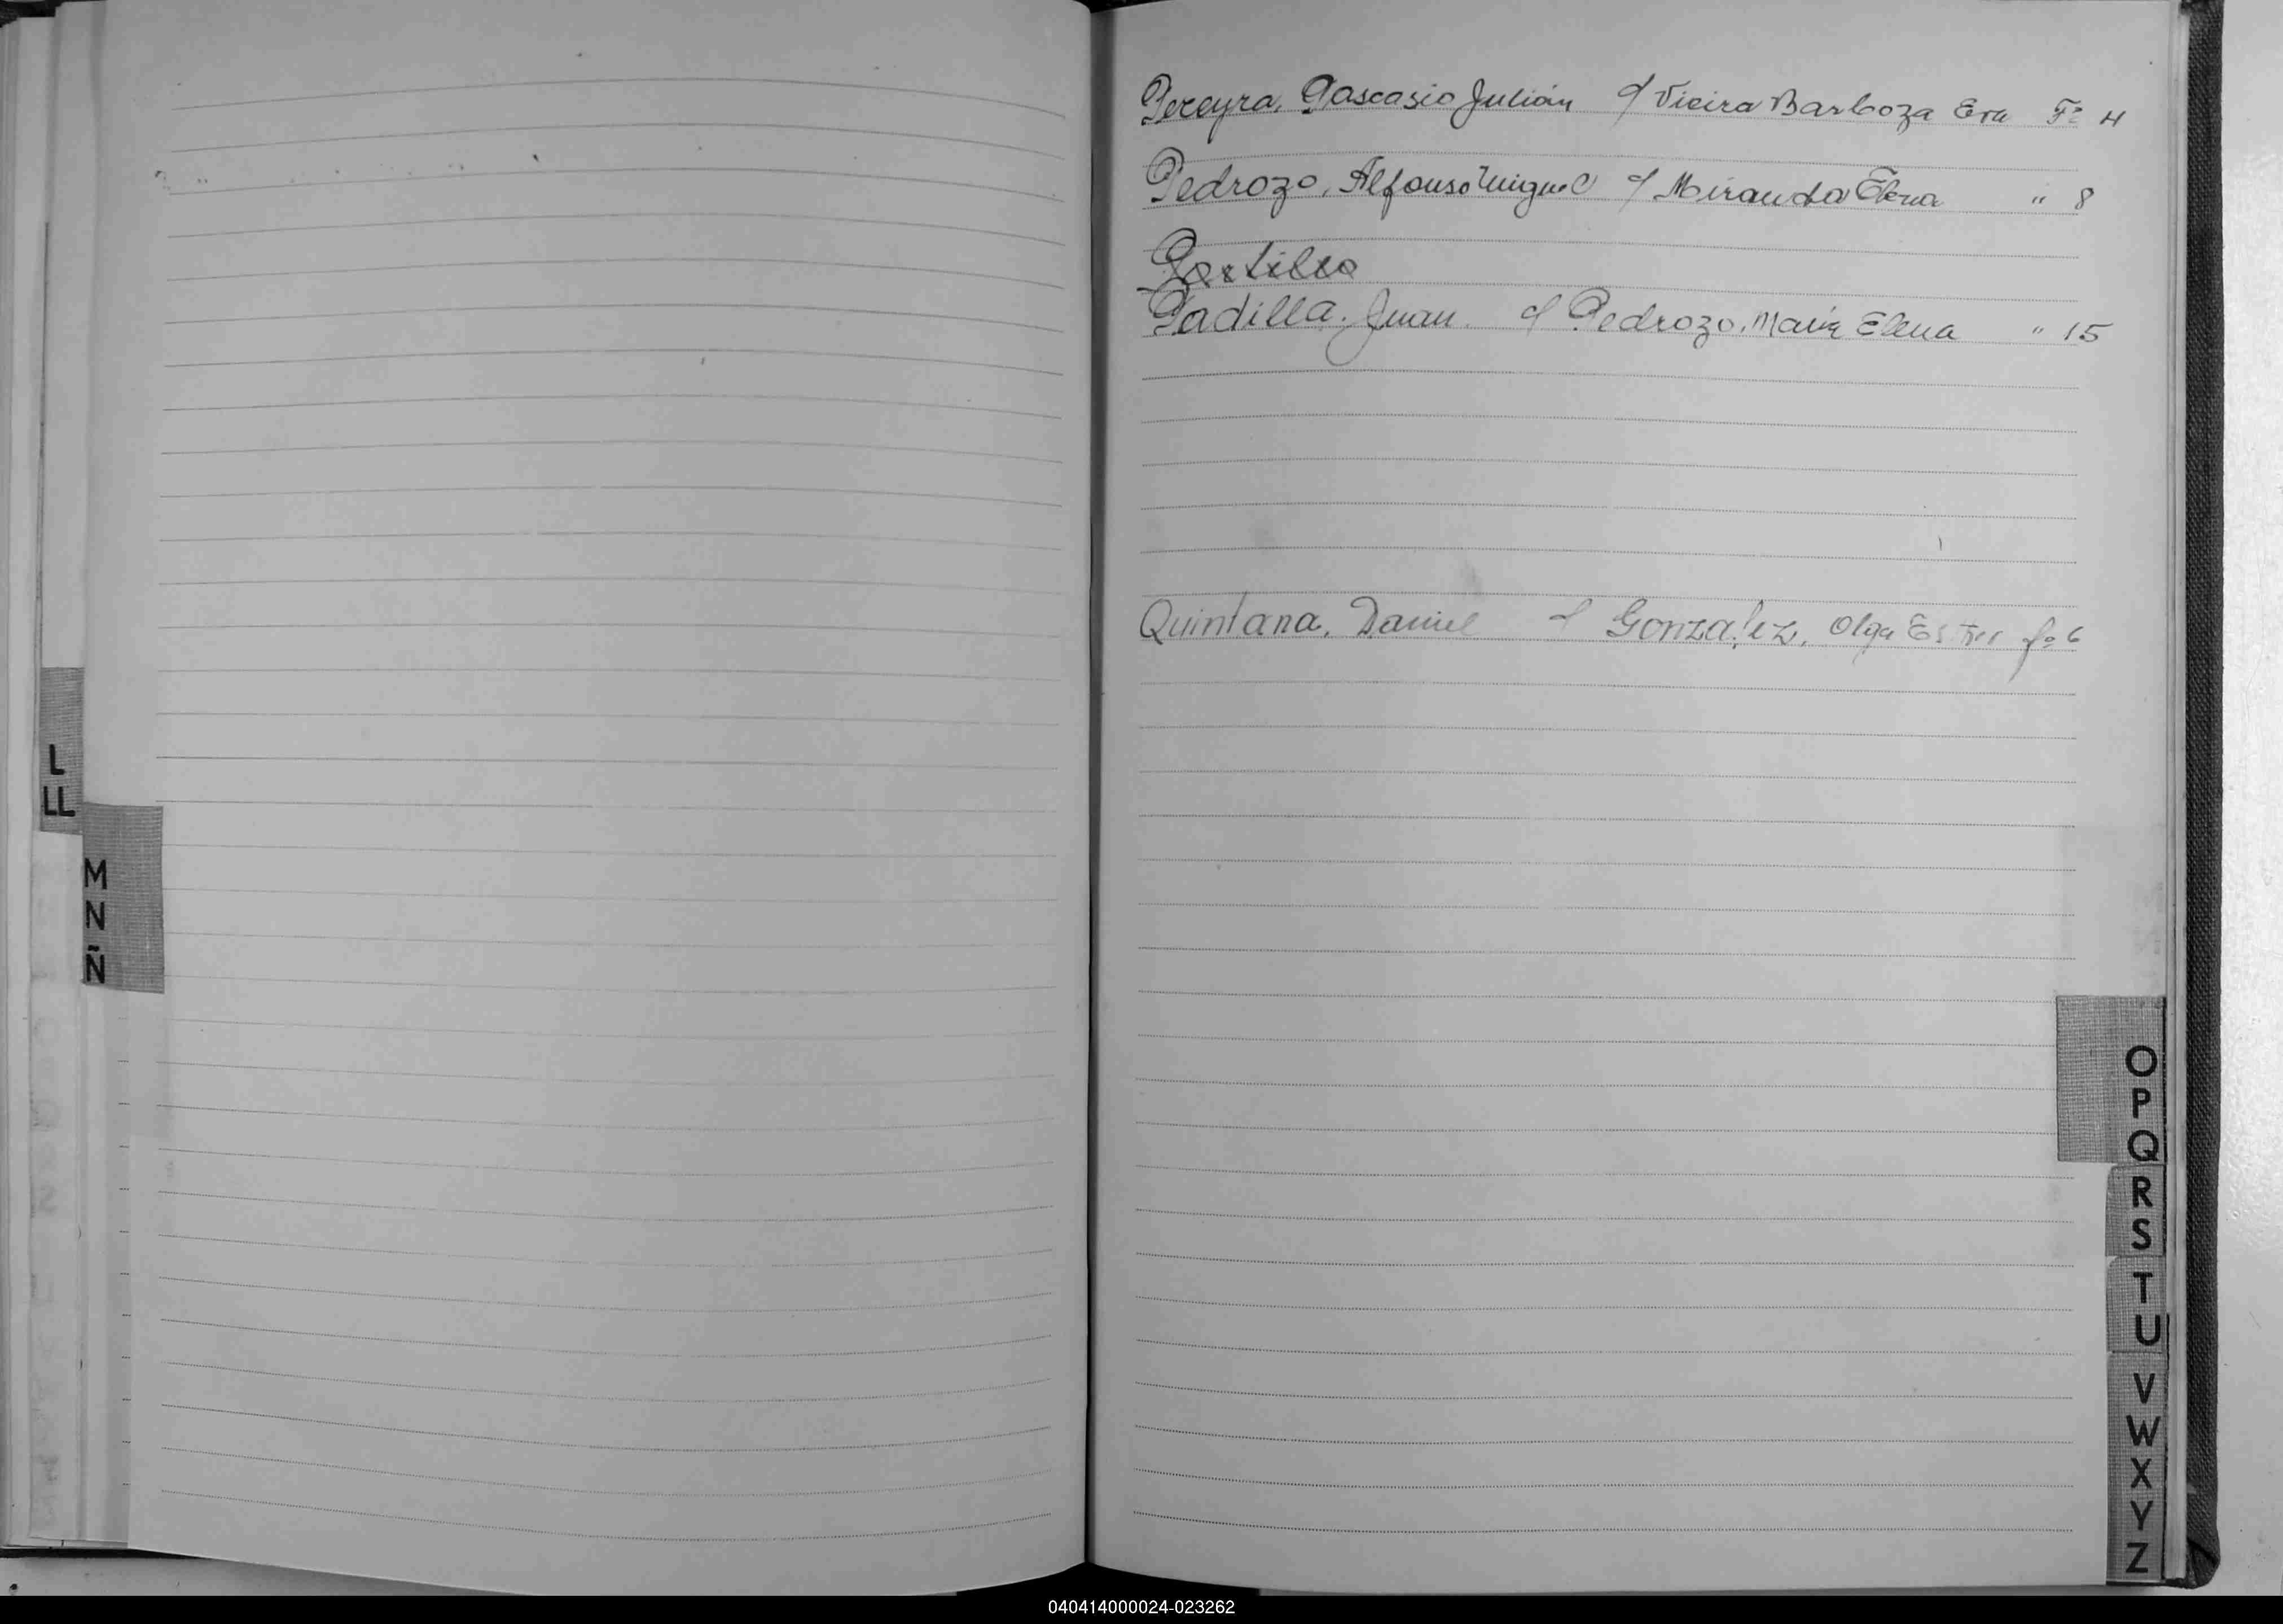 Pereyra, Pascasio Julián c/ Vieira Barboza Eva Fº 4
Pedrozo, Alfonso Miguel c/ Miranda Elena " 8
Portillo
Padilla. Juan. c/ Pedrozo, María Elena " 15
Quintana, Daniel c/ Gonzalez, Olga Ester fº 6
L
LL
M
N
Ñ
O
P
Q
R
S
T
U
V
W
X
Y
Z
040414000024-023262